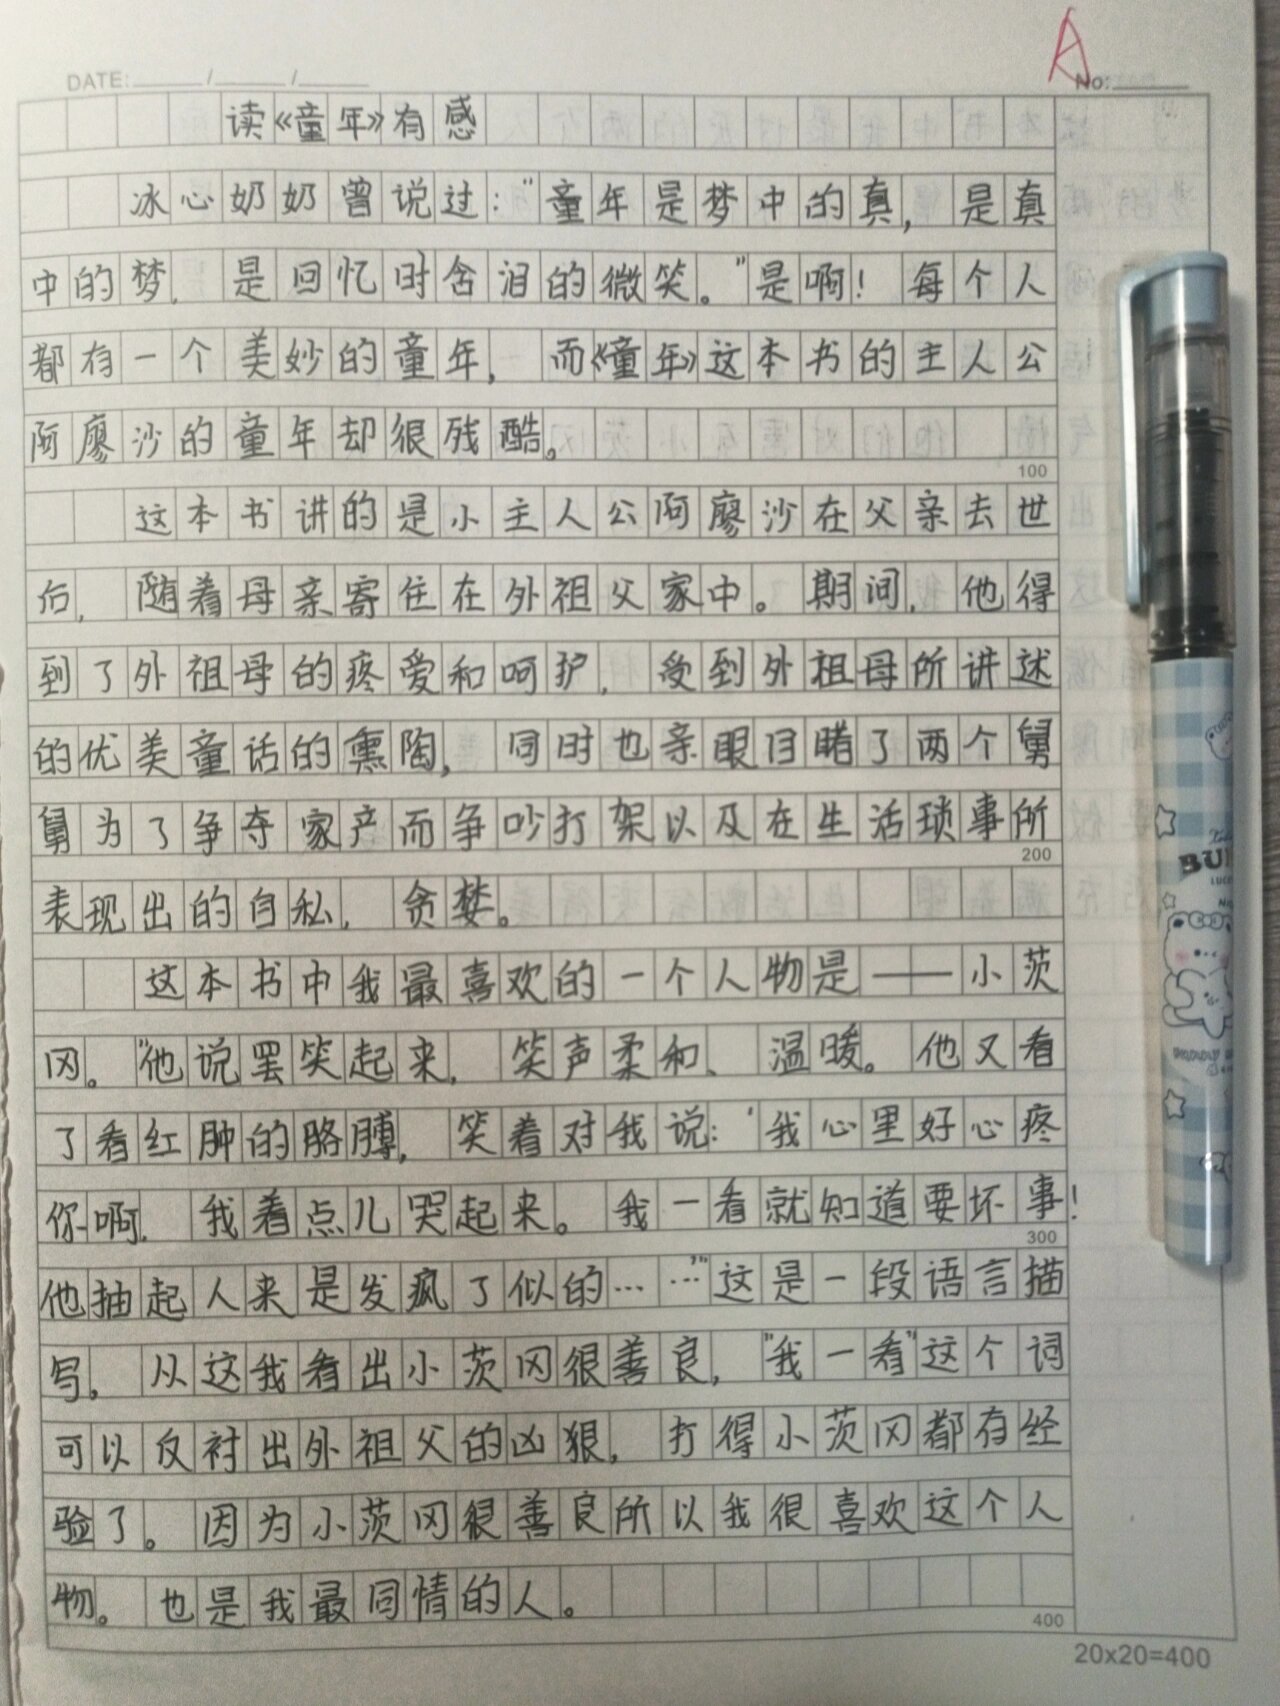 A
DATE: / / No:
读《童年》有感
冰心奶奶曾说过："童年是梦中的真，是真
中的梦，是回忆时含泪的微笑。"是啊！每个人
都有一个美妙的童年，而《童年》这本书的主人公
阿廖沙的童年却很残酷。
100
这本书讲的是小主人公阿廖沙在父亲去世
后，随着母亲寄住在外祖父家中。期间，他得
到了外祖母的疼爱和呵护，受到外祖母所讲述
的优美童话的熏陶，同时也亲眼目睹了两个舅
舅为了争夺家产而争吵打架以及在生活琐事所
200
表现出的自私，贪婪。
这本书中我最喜欢的一个人物是——小茨
冈。"他说罢笑起来，笑声柔和、温暖。他又看
了看红肿的胳膊，笑着对我说：'我心里好心疼
你啊，我着点儿哭起来。我一看就知道要坏事！
300
他抽起人来是发疯了似的……'"这是一段语言描
写，从这我看出小茨冈很善良，"我一看"这个词
可以反衬出外祖父的凶狠，打得小茨冈都有经
验了。因为小茨冈很善良所以我很喜欢这个人
物。也是我最同情的人。
400
20x20=400